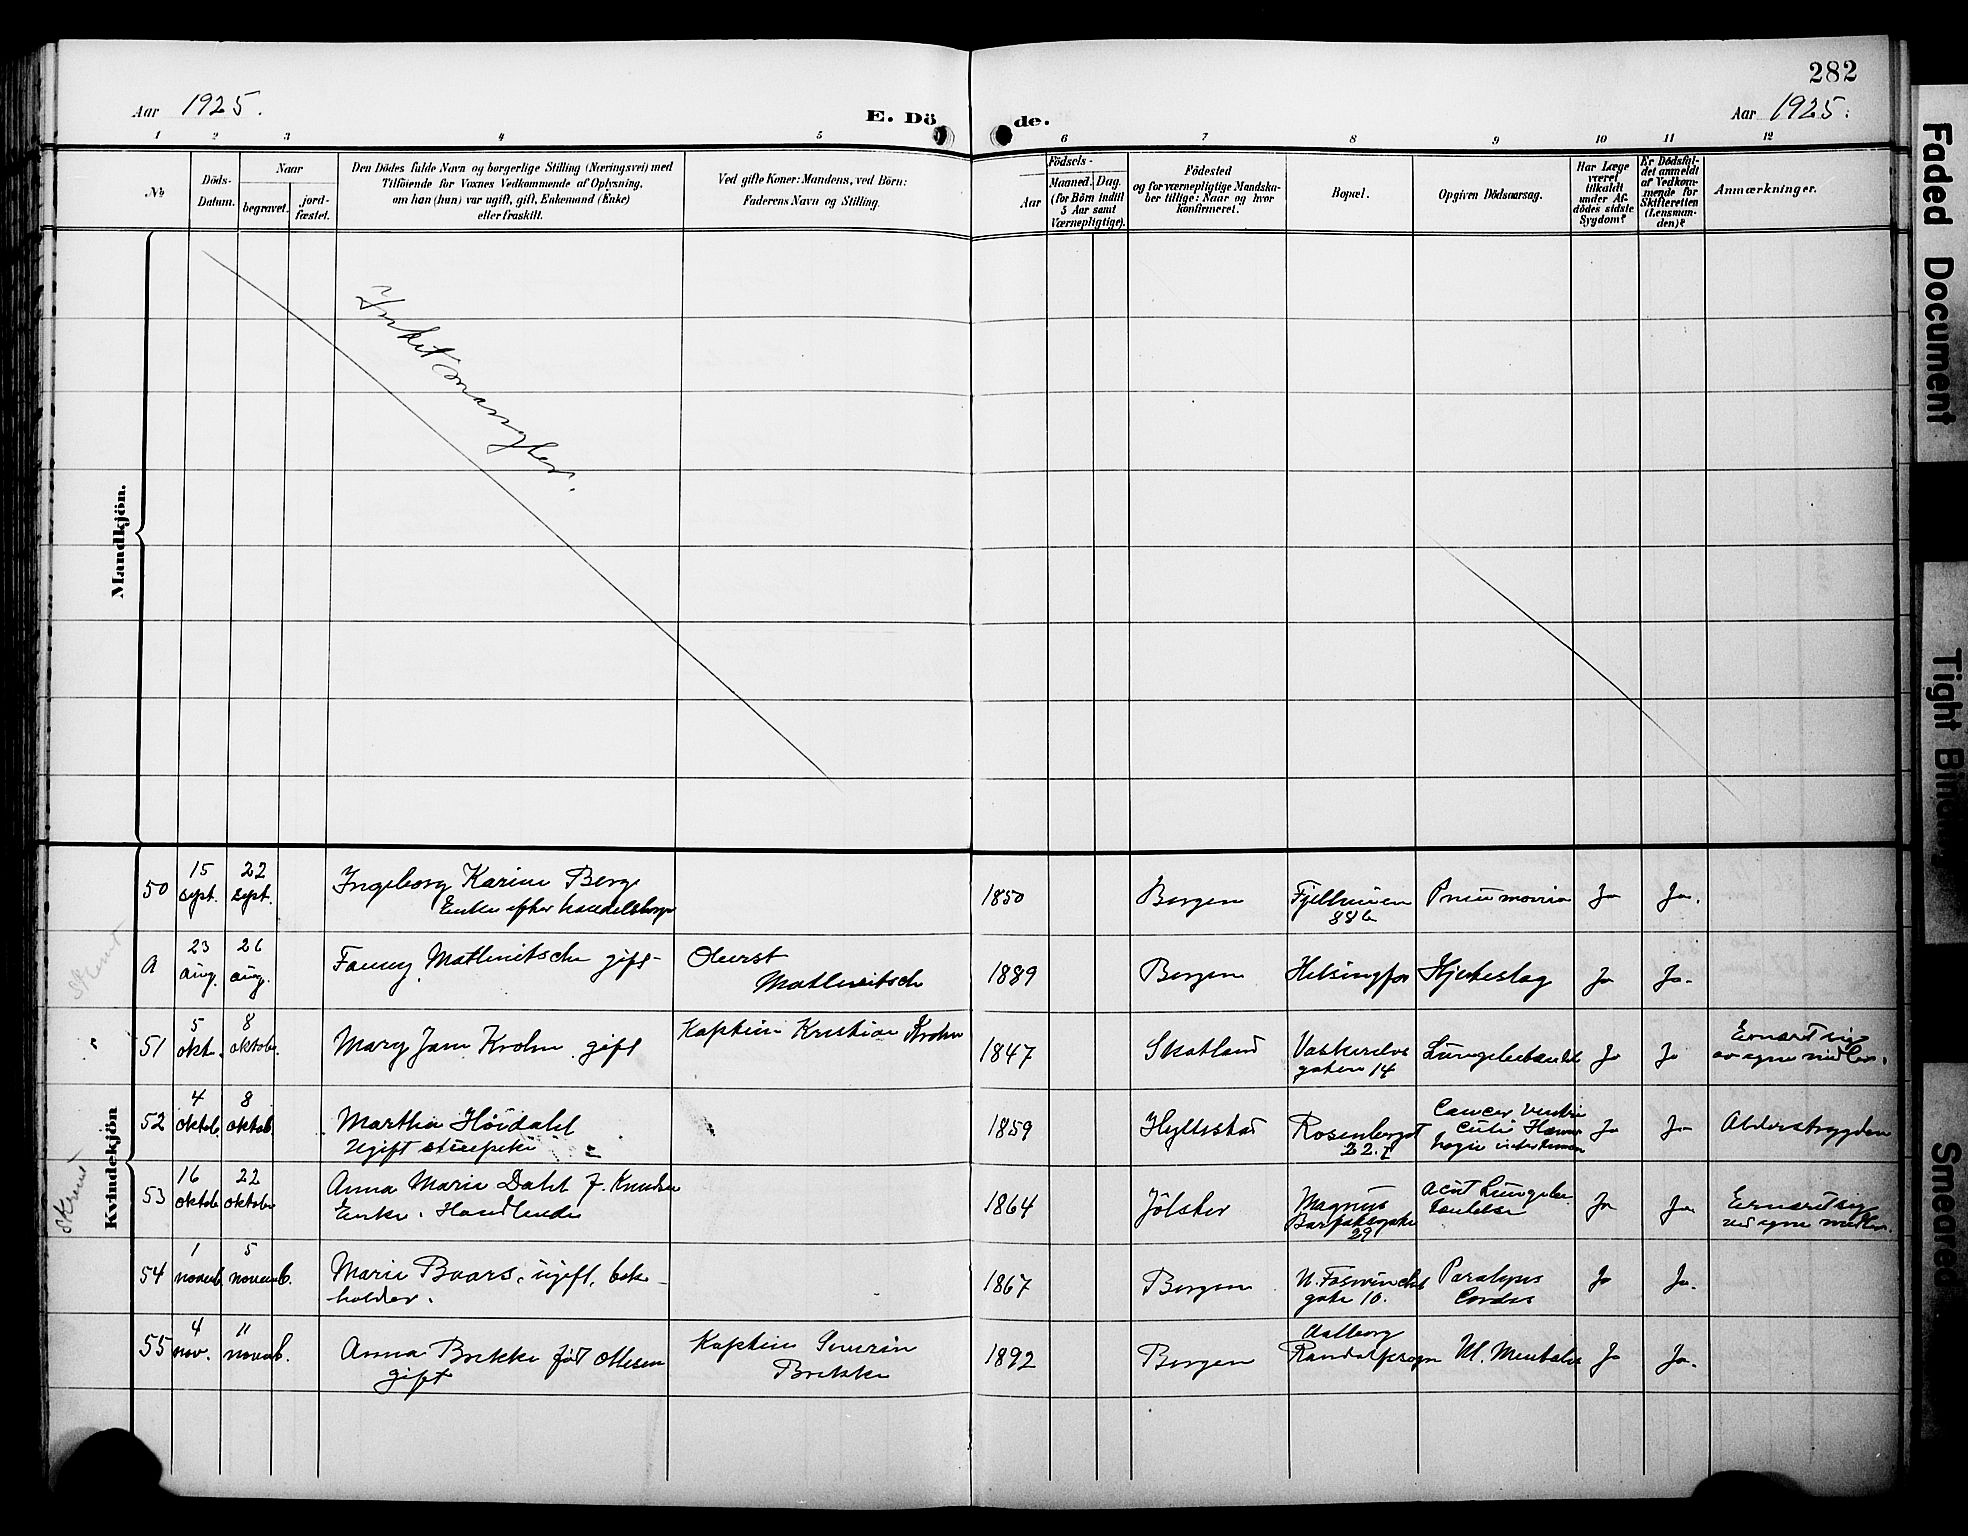 282
Aar 1925.
E. Dö
de.
Aar 1925.
1 2 3 4 5 6 7 8 9 10 11 12
No
Döds-
Datum.
Naar
begravet.
jord-
fæstet.
Den Dödes fulde Navn og borgerlige Stilling (Næringsvei) med
Tilföiende for Voxnes Vedkommende af Oplysning,
om han (hun) var ugift, gift, Enkemand (Enke)
eller fraskilt.
Ved gifte Koner: Mandens, ved Börn:
Faderens Navn og Stilling.
Födsels-
Aar
Maaned. Dag.
(for Börn indtil
5 Aar samt
Værnepligtige).
Födested
og for værnepligtige Mandska-
ber tillige: Naar og hvor
konfirmeret.
Bopæl.
Opgiven Dödsaarsag.
Har Læge
været
tilkaldt
under Af-
dödes sidste
Sygdom?
Er Dödsfal-
det anmeldt
af Vedkom-
mende for
Skifteretten
(Lensman-
den)?
Anmærkninger.
Mandkjön.
Intet mangler.
Kvindekjön
50
15
sept.
22
sept.
Ingeborg Karine Berg
Enke efter handelsborger
1850
Bergen
Fjellveien
88b
Pneumonia
Ja
Ja.
a
23
aug.
26
aug.
Fanny gift
Oberst
1889
Bergen
Helsingfors
Hjerteslag
Ja
Ja.
51
5
okt.
8
oktober.
Mary Jane Krohn gift
Kaptein Kristian Krohn
1847
Skotland
Vaskerelvs
gaten 14
Lungebetændelse
Ja
Ja
Ernæret sig
av egne midler.
52
4
oktob.
8
oktob.
Martha Höidahl
Ugift stuepike
1859
Hyllestad
Rosenbergsgt
22.
Cancer ventri
culi Hæmor
Ja
Ja
Alderstrygden
53
16
oktob
22
oktober
Anna Marie Dahl f. Knudsen
Enke. Handlende
1864
Jölster
Magnus
Barfotsgate
29
Acut Lungebe
tændelse
Ja
Ja
Ernæret sig
ved egne midler.
54
1
novemb.
5
novemb.
Marie Baars, ugift, bok-
holder.
1867
Bergen
N. Fosswinckels
gate 10.
Paralysis
Cordis
Ja
Ja.
55
4
nov.
11
novemb.
Anna Brekke född Ottesen
gift
Kaptein Severin
Brekke
1892
Bergen
Aalborg
M. Mentalis
Ja
Ja.
Faded Document
Tight Bin
Smeared